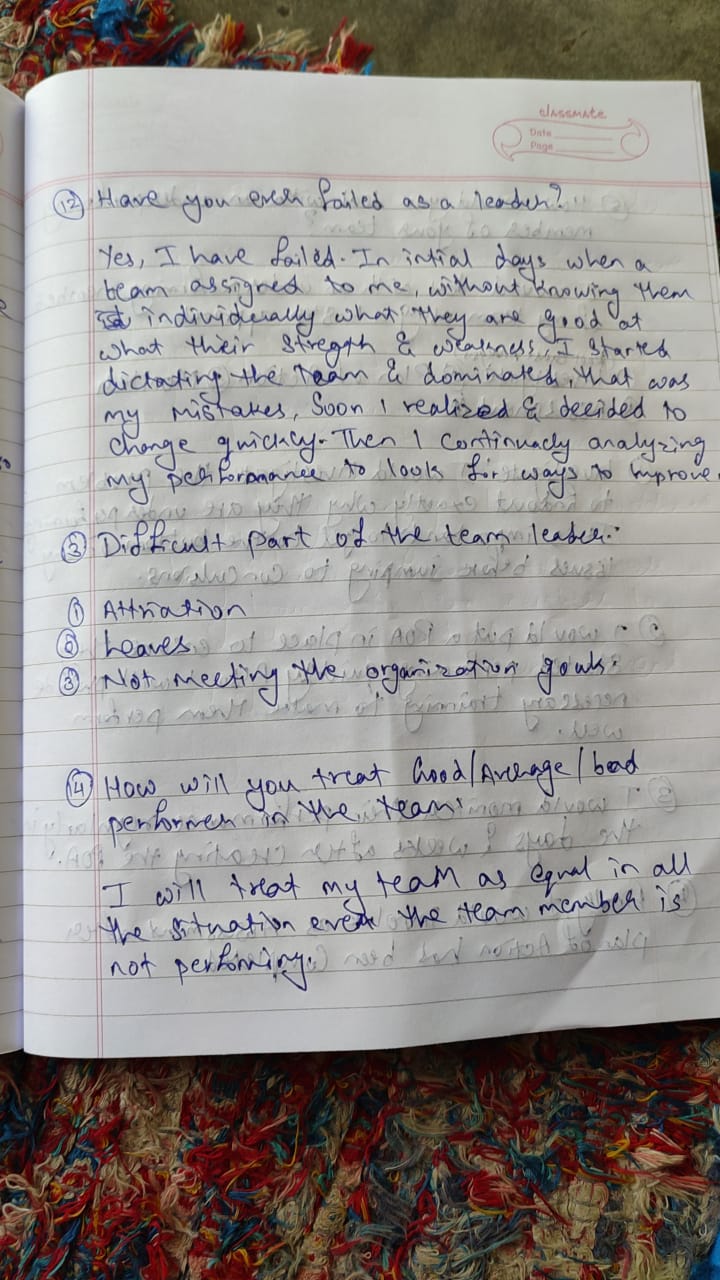 classmate
Date
Page
⑫ Have you ever failed as a leader?
Yes, I have failed. In intial days when a
team assigned to me, without knowing them
individually what they are good at
what their stregth & weakness, I started
dictating the team & dominated, that was
my mistakes, Soon I realized & decided to
change quickly. Then I continuacly analyzing
my performanance to look for ways to improve.
⑬ Difficult part of the team leader.
① Attriation
② Leaves
③ Not meeting the organization goals.
⑭ How will you treat Good/Average/bad
performer in the team.
I will treat my team as equal in all
the situation even the team member is
not performing.